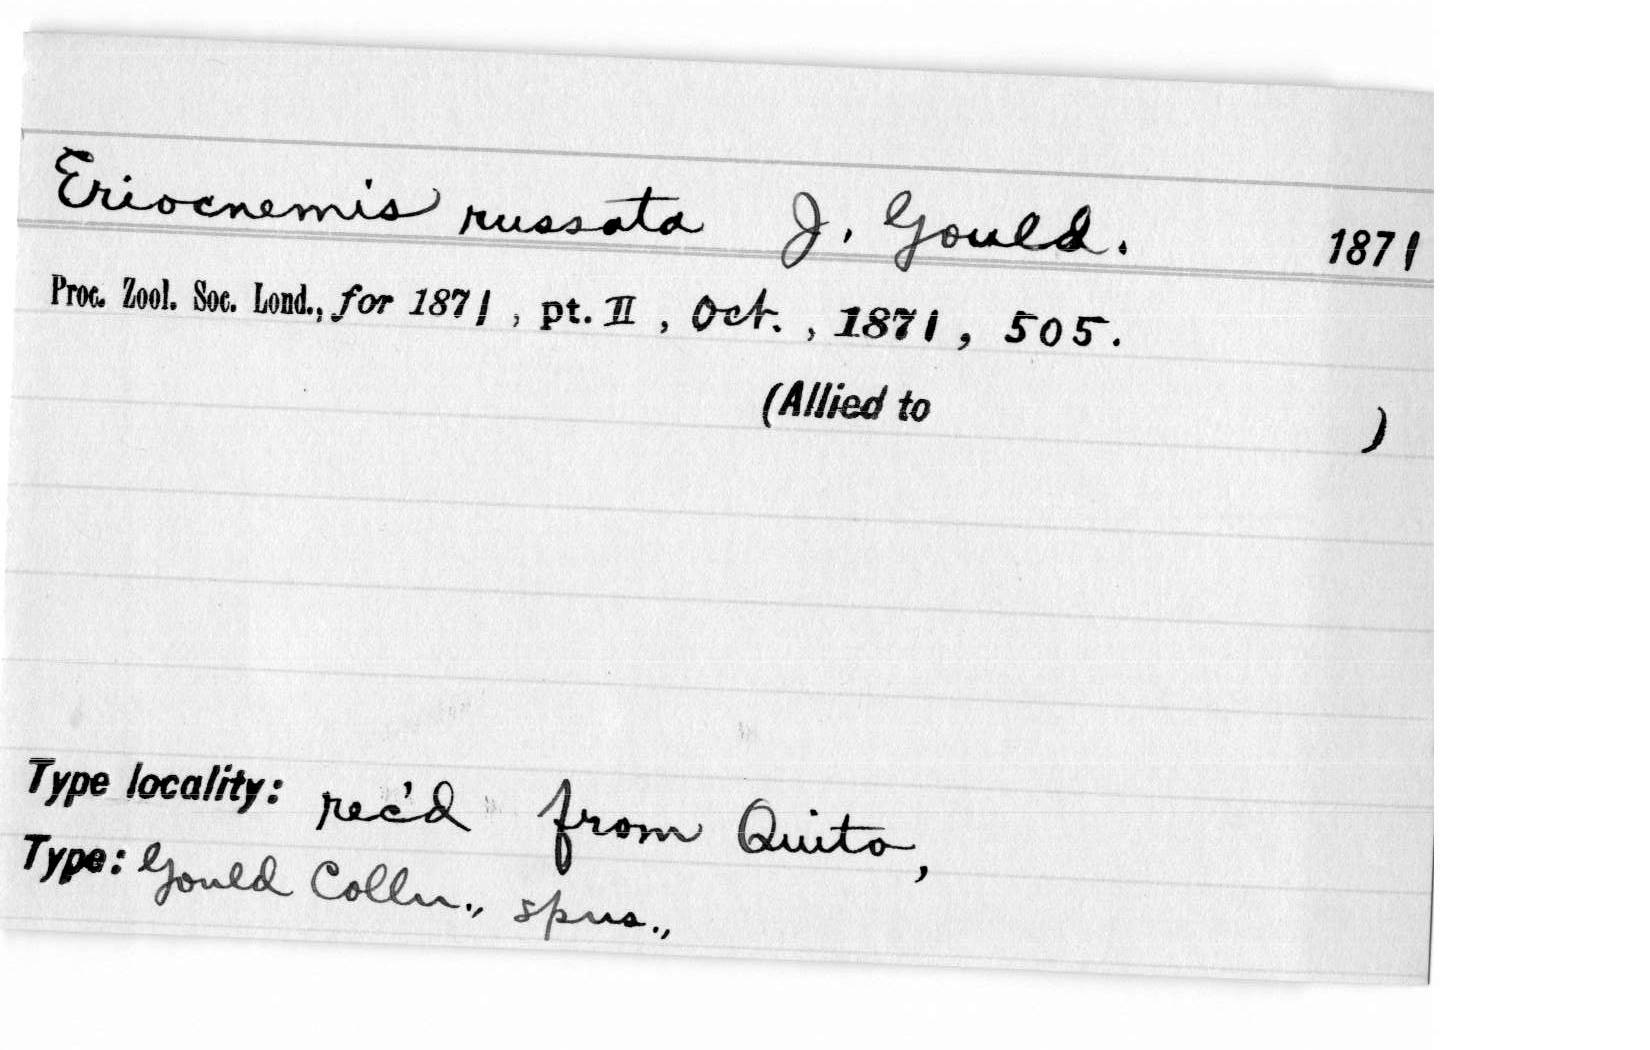 Eriocnemis russata J. Gould. 1871
Proc. Zool. Soc. Lond., for 1871, pt. II, Oct., 1871, 505.
(Allied to )
Type locality: rec'd from Quito,
Type: Gould Colln., spns.,